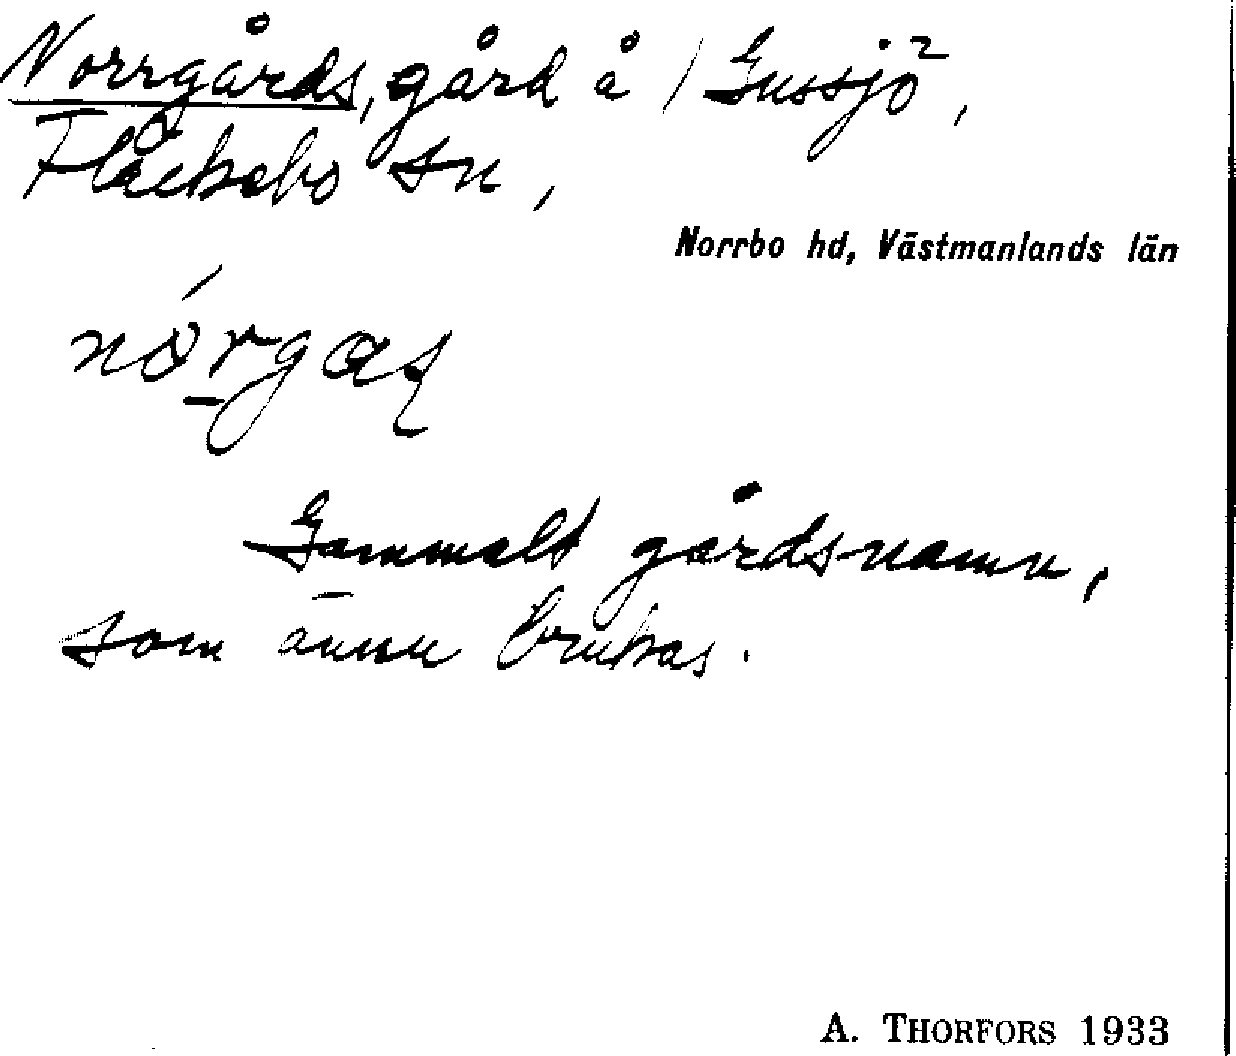 Norrgårds, gård å / Gussjö,
Fläckebo sn,
Norrbo hd, Västmanlands län
nórgas
Gammalt gårdsnamn,
som ännu brukas.
A. THORFORS 1933